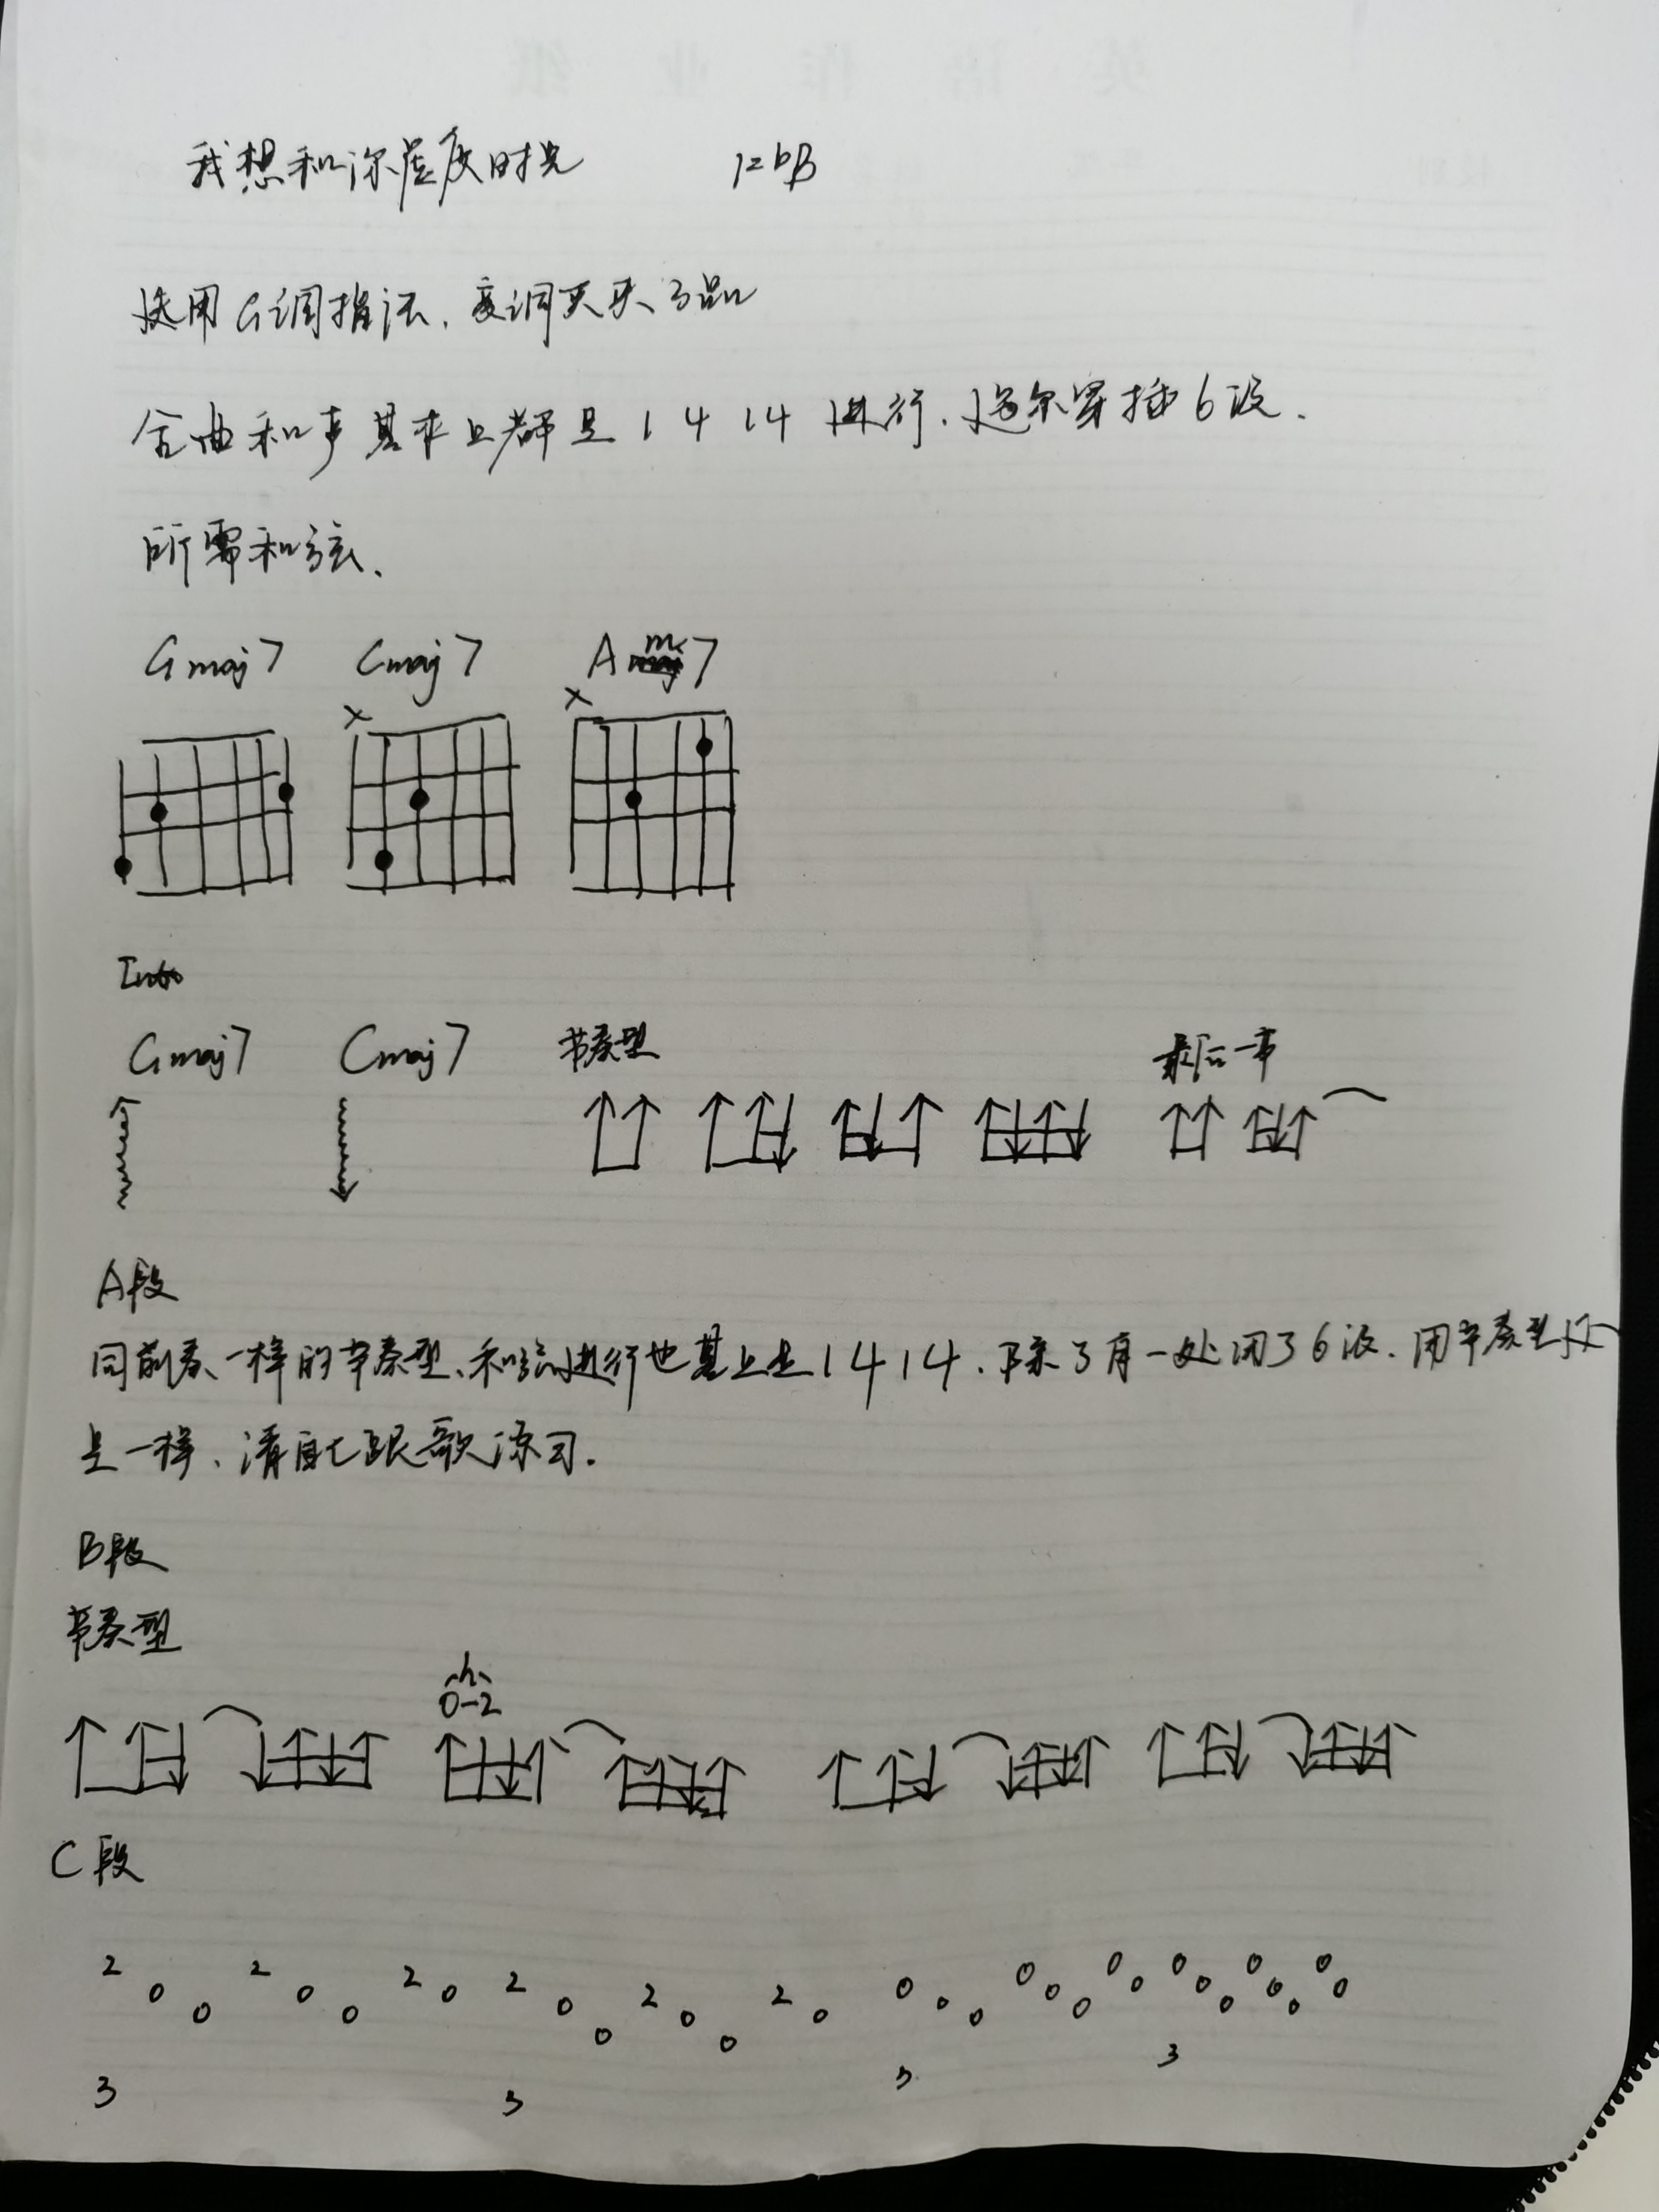 我想和你虚度时光 1=bB
使用G调指法、变调夹夹3品
全曲和声基本上都是1 4 1 4 进行、偶尔穿插6级.
所需和弦、
Gmaj7 Cmaj7 Am7
x x
Intro
Gmaj7 Cmaj7 节奏型 最后一节
A段
同前奏一样的节奏型、和弦进行也基上是1 4 1 4、除了有一处用了6级、用节奏型还
是一样、请自己跟歌练习.
B段
节奏型
h
0-2
C段
2 0 0 2 0 0 2 0 2 0 0 2 0 0 2 0 0 0 0 0 0 0 0 0 0 0 0 0 0 0 0 0
3 3 3 3